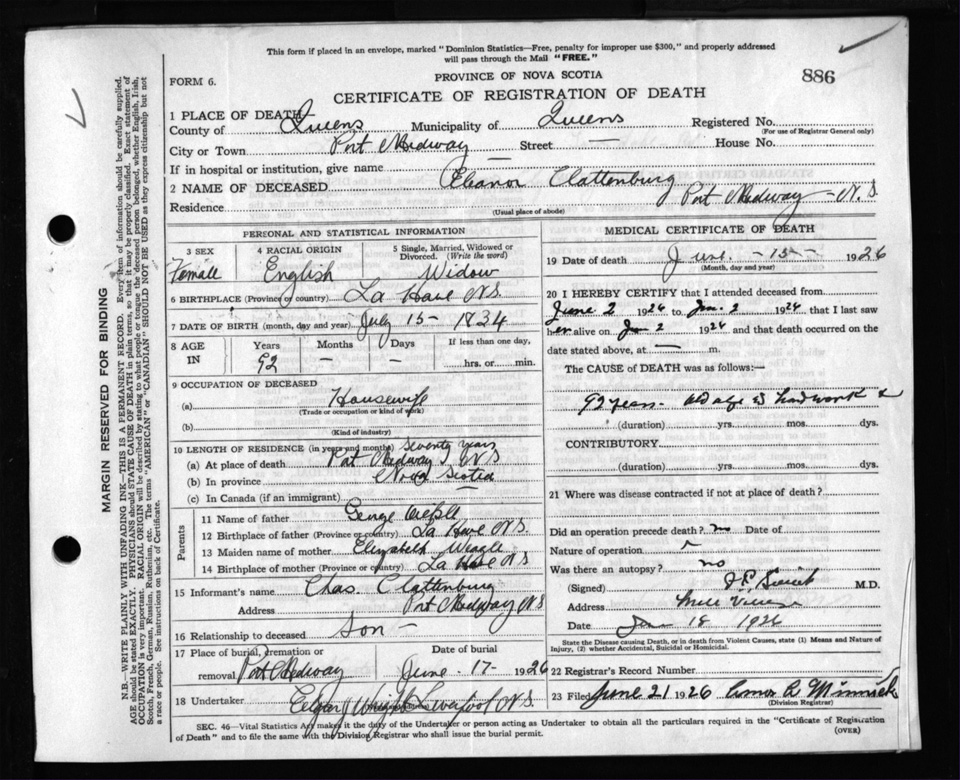 This form if placed in an envelope, marked "Dominion Statistics—Free, penalty for improper use $300," and properly addressed
will pass through the Mail "FREE."
FORM 6.
PROVINCE OF NOVA SCOTIA
886
CERTIFICATE OF REGISTRATION OF DEATH
1 PLACE OF DEATH
County of Queens Municipality of Queens Registered No.
(For use of Registrar General only)
City or Town Port Medway Street — House No.
If in hospital or institution, give name —
2 NAME OF DECEASED Eleanor Clattenburg
Residence Port Medway - N.S.
(Usual place of abode)
PERSONAL AND STATISTICAL INFORMATION
3 SEX 4 RACIAL ORIGIN 5 Single, Married, Widowed or Divorced. (Write the word)
Female English Widow
6 BIRTHPLACE (Province or country) La Have N.S.
7 DATE OF BIRTH (month, day and year) July 15 - 1834
8 AGE IN Years Months Days If less than one day,
92 — — hrs. or min.
9 OCCUPATION OF DECEASED
(a) Housewife
(Trade or occupation or kind of work)
(b)
(Kind of industry)
10 LENGTH OF RESIDENCE (in years and months) Seventy years
(a) At place of death Port Medway N S
(b) In province Nova Scotia
(c) In Canada (if an immigrant) —
Parents
11 Name of father George
12 Birthplace of father (Province or country) La Have N S
13 Maiden name of mother Elizabeth Weagle
14 Birthplace of mother (Province or country) La Have N S
15 Informant's name Chas. Clattenburg
Address Port Medway N S
16 Relationship to deceased Son —
17 Place of burial, cremation or removal Port Medway Date of burial June - 17 - 1926
18 Undertaker Liverpool N.S.
MEDICAL CERTIFICATE OF DEATH
19 Date of death June - 15 - 1926
(Month, day and year)
20 I HEREBY CERTIFY that I attended deceased from
June 2 1926 to Jun. 2 1926 that I last saw
her alive on Jun 2 1926 and that death occurred on
date stated above, at — m.
The CAUSE of DEATH was as follows:—
92 years - old age & hard work
(duration) yrs. mos. dys.
CONTRIBUTORY
(duration) yrs. mos. dys.
21 Where was disease contracted if not at place of death?
Did an operation precede death? no Date of
Nature of operation
Was there an autopsy? no
(Signed) M.D.
Address Mill Village
Date Jun 18 1926
State the Disease causing Death, or in death from Violent Causes, state (1) Means and Nature of
Injury, (2) whether Accidental, Suicidal or Homicidal.
22 Registrar's Record Number
23 Filed June 21 1926
(Division Registrar)
SEC. 46—Vital Statistics Act makes it the duty of the Undertaker or person acting as Undertaker to obtain all the particulars required in the "Certificate of Registration
of Death" and to file the same with the Division Registrar who shall issue the burial permit.
(OVER)
MARGIN RESERVED FOR BINDING
N.B.—WRITE PLAINLY WITH UNFADING INK—THIS IS A PERMANENT RECORD. Every item of information should be carefully supplied.
AGE should be stated EXACTLY. PHYSICIANS should STATE CAUSE OF DEATH in plain terms, so that it may be properly classified. Exact statement of
OCCUPATION is very important. RACIAL ORIGIN will be described by stating to what people or tongue the deceased person belonged, whether English, Irish,
Scotch, French, German, Russian, Ruthenian, etc. The terms "AMERICAN" or "CANADIAN" SHOULD NOT BE USED as they express citizenship but not
a race or people. See instructions on back of Certificate.